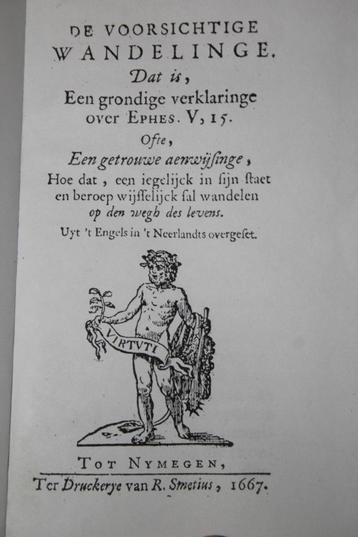 DE VOORSICHTIGE
WANDELINGE.
Dat is,
Een grondige verklaringe
over EPHES. V, 15.
Ofte,
Een getrouwe aenwijſinge,
Hoe dat, een iegelijck in ſijn ſtaet
en beroep wijſſelijck ſal wandelen
op den wegh des levens.
Uyt 't Engels in 't Neerlandts overgeſet.
VIRTVTI
TOT NYMEGEN,
Ter Druckerye van R. Smetius, 1667.